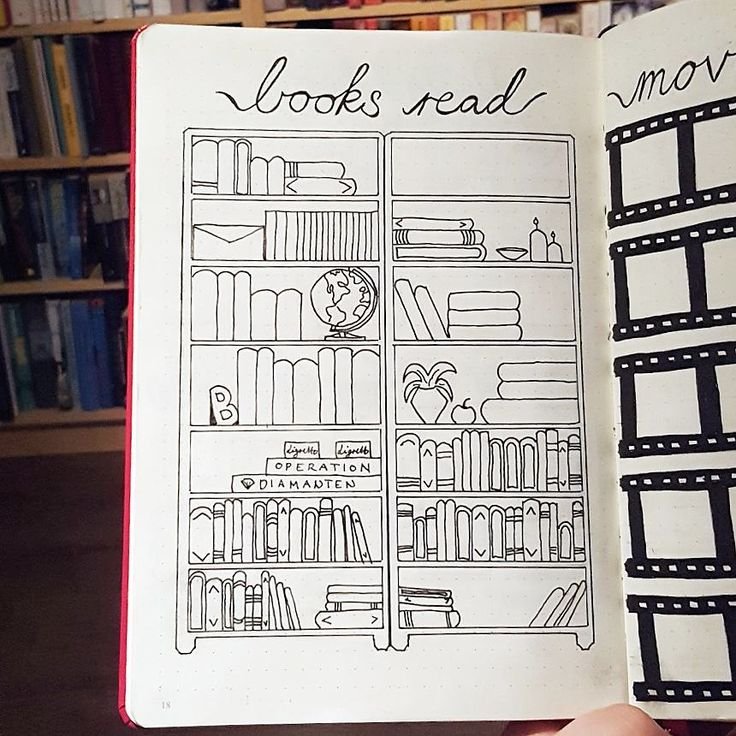 books read
mov
B
Ligretto Ligretto
OPERATION
DIAMANTEN
18